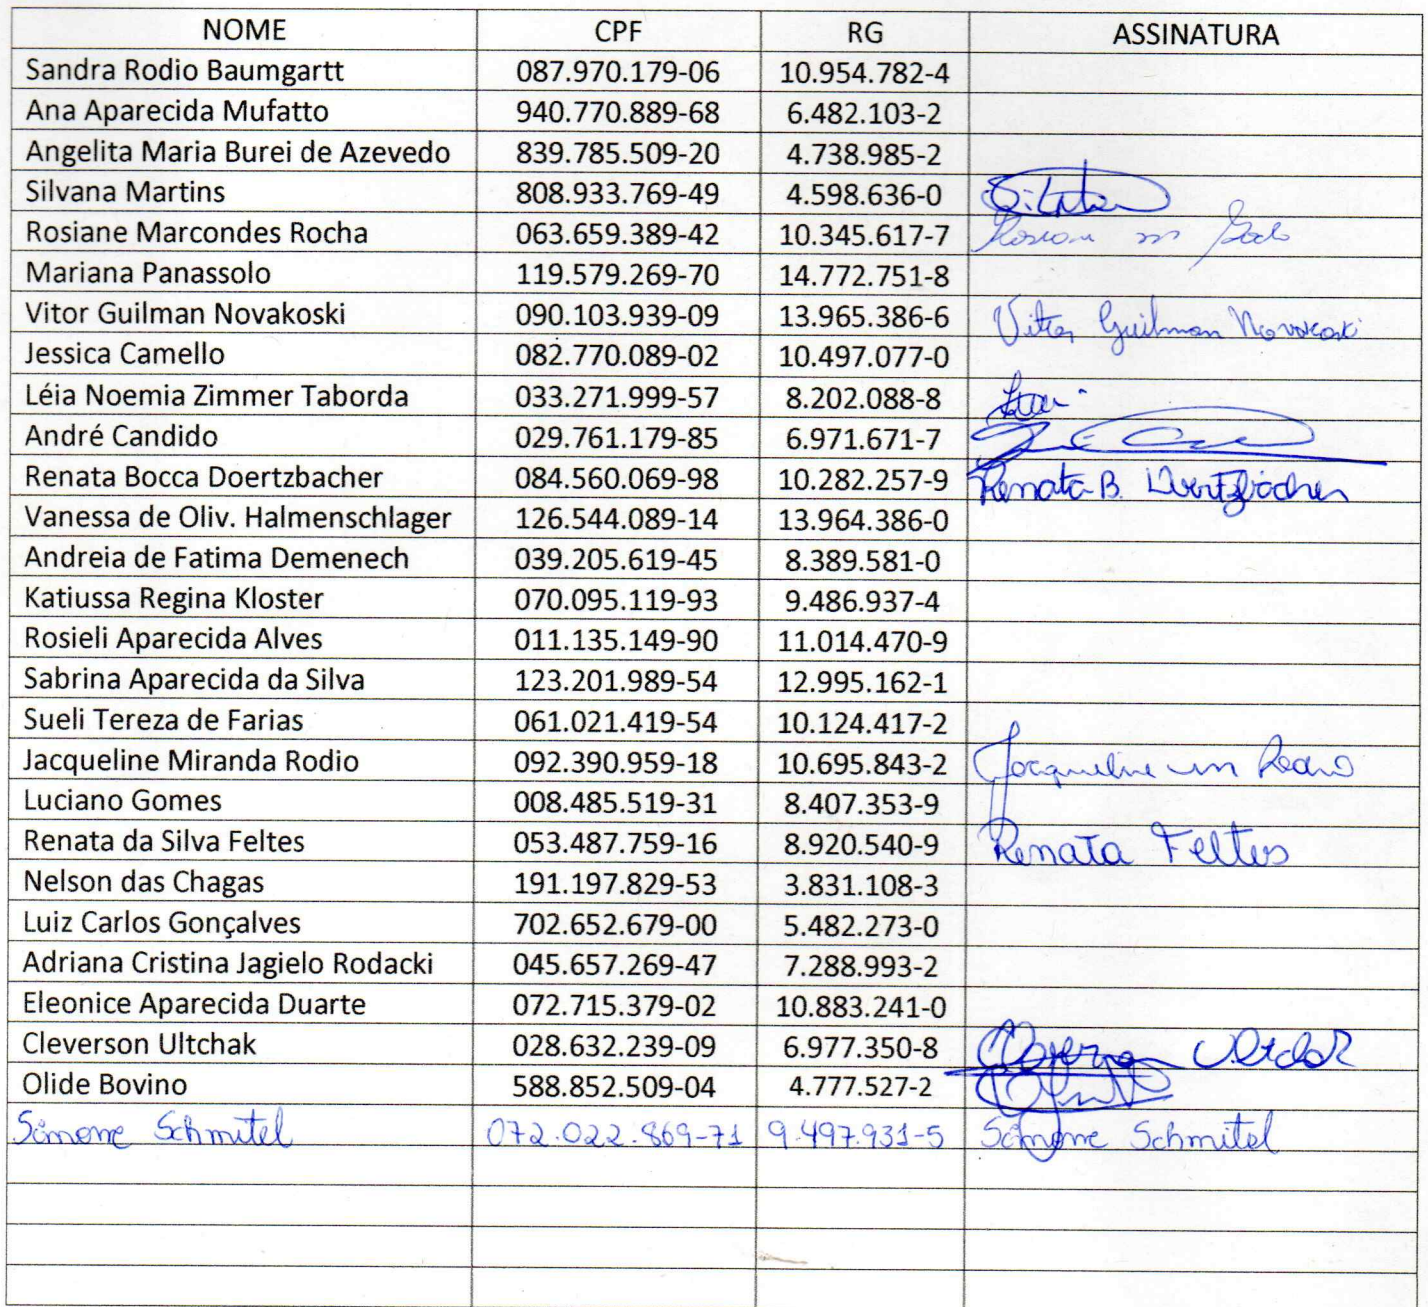 NOME CPF RG ASSINATURA
Sandra Rodio Baumgartt 087.970.179-06 10.954.782-4
Ana Aparecida Mufatto 940.770.889-68 6.482.103-2
Angelita Maria Burei de Azevedo 839.785.509-20 4.738.985-2
Silvana Martins 808.933.769-49 4.598.636-0
Rosiane Marcondes Rocha 063.659.389-42 10.345.617-7
Mariana Panassolo 119.579.269-70 14.772.751-8
Vitor Guilman Novakoski 090.103.939-09 13.965.386-6 Vitor Guilman Novakoski
Jessica Camello 082.770.089-02 10.497.077-0
Léia Noemia Zimmer Taborda 033.271.999-57 8.202.088-8
André Candido 029.761.179-85 6.971.671-7
Renata Bocca Doertzbacher 084.560.069-98 10.282.257-9 Renata B. Doertzbacher
Vanessa de Oliv. Halmenschlager 126.544.089-14 13.964.386-0
Andreia de Fatima Demenech 039.205.619-45 8.389.581-0
Katiussa Regina Kloster 070.095.119-93 9.486.937-4
Rosieli Aparecida Alves 011.135.149-90 11.014.470-9
Sabrina Aparecida da Silva 123.201.989-54 12.995.162-1
Sueli Tereza de Farias 061.021.419-54 10.124.417-2
Jacqueline Miranda Rodio 092.390.959-18 10.695.843-2 Jacqueline m Rodio
Luciano Gomes 008.485.519-31 8.407.353-9
Renata da Silva Feltes 053.487.759-16 8.920.540-9 Renata Feltes
Nelson das Chagas 191.197.829-53 3.831.108-3
Luiz Carlos Gonçalves 702.652.679-00 5.482.273-0
Adriana Cristina Jagielo Rodacki 045.657.269-47 7.288.993-2
Eleonice Aparecida Duarte 072.715.379-02 10.883.241-0
Cleverson Ultchak 028.632.239-09 6.977.350-8
Olide Bovino 588.852.509-04 4.777.527-2
Simone Schmitel 072.022.869-71 9.497.931-5 Simone Schmitel